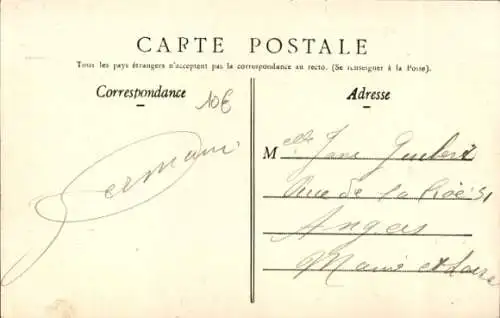 CARTE POSTALE
Tous les pays étrangers n'acceptent pas la correspondance au recto. (Se renseigner à la Poste).
Correspondance
10€
Germain
Adresse
Melle
Rue de la
Angers
Maine et Loire